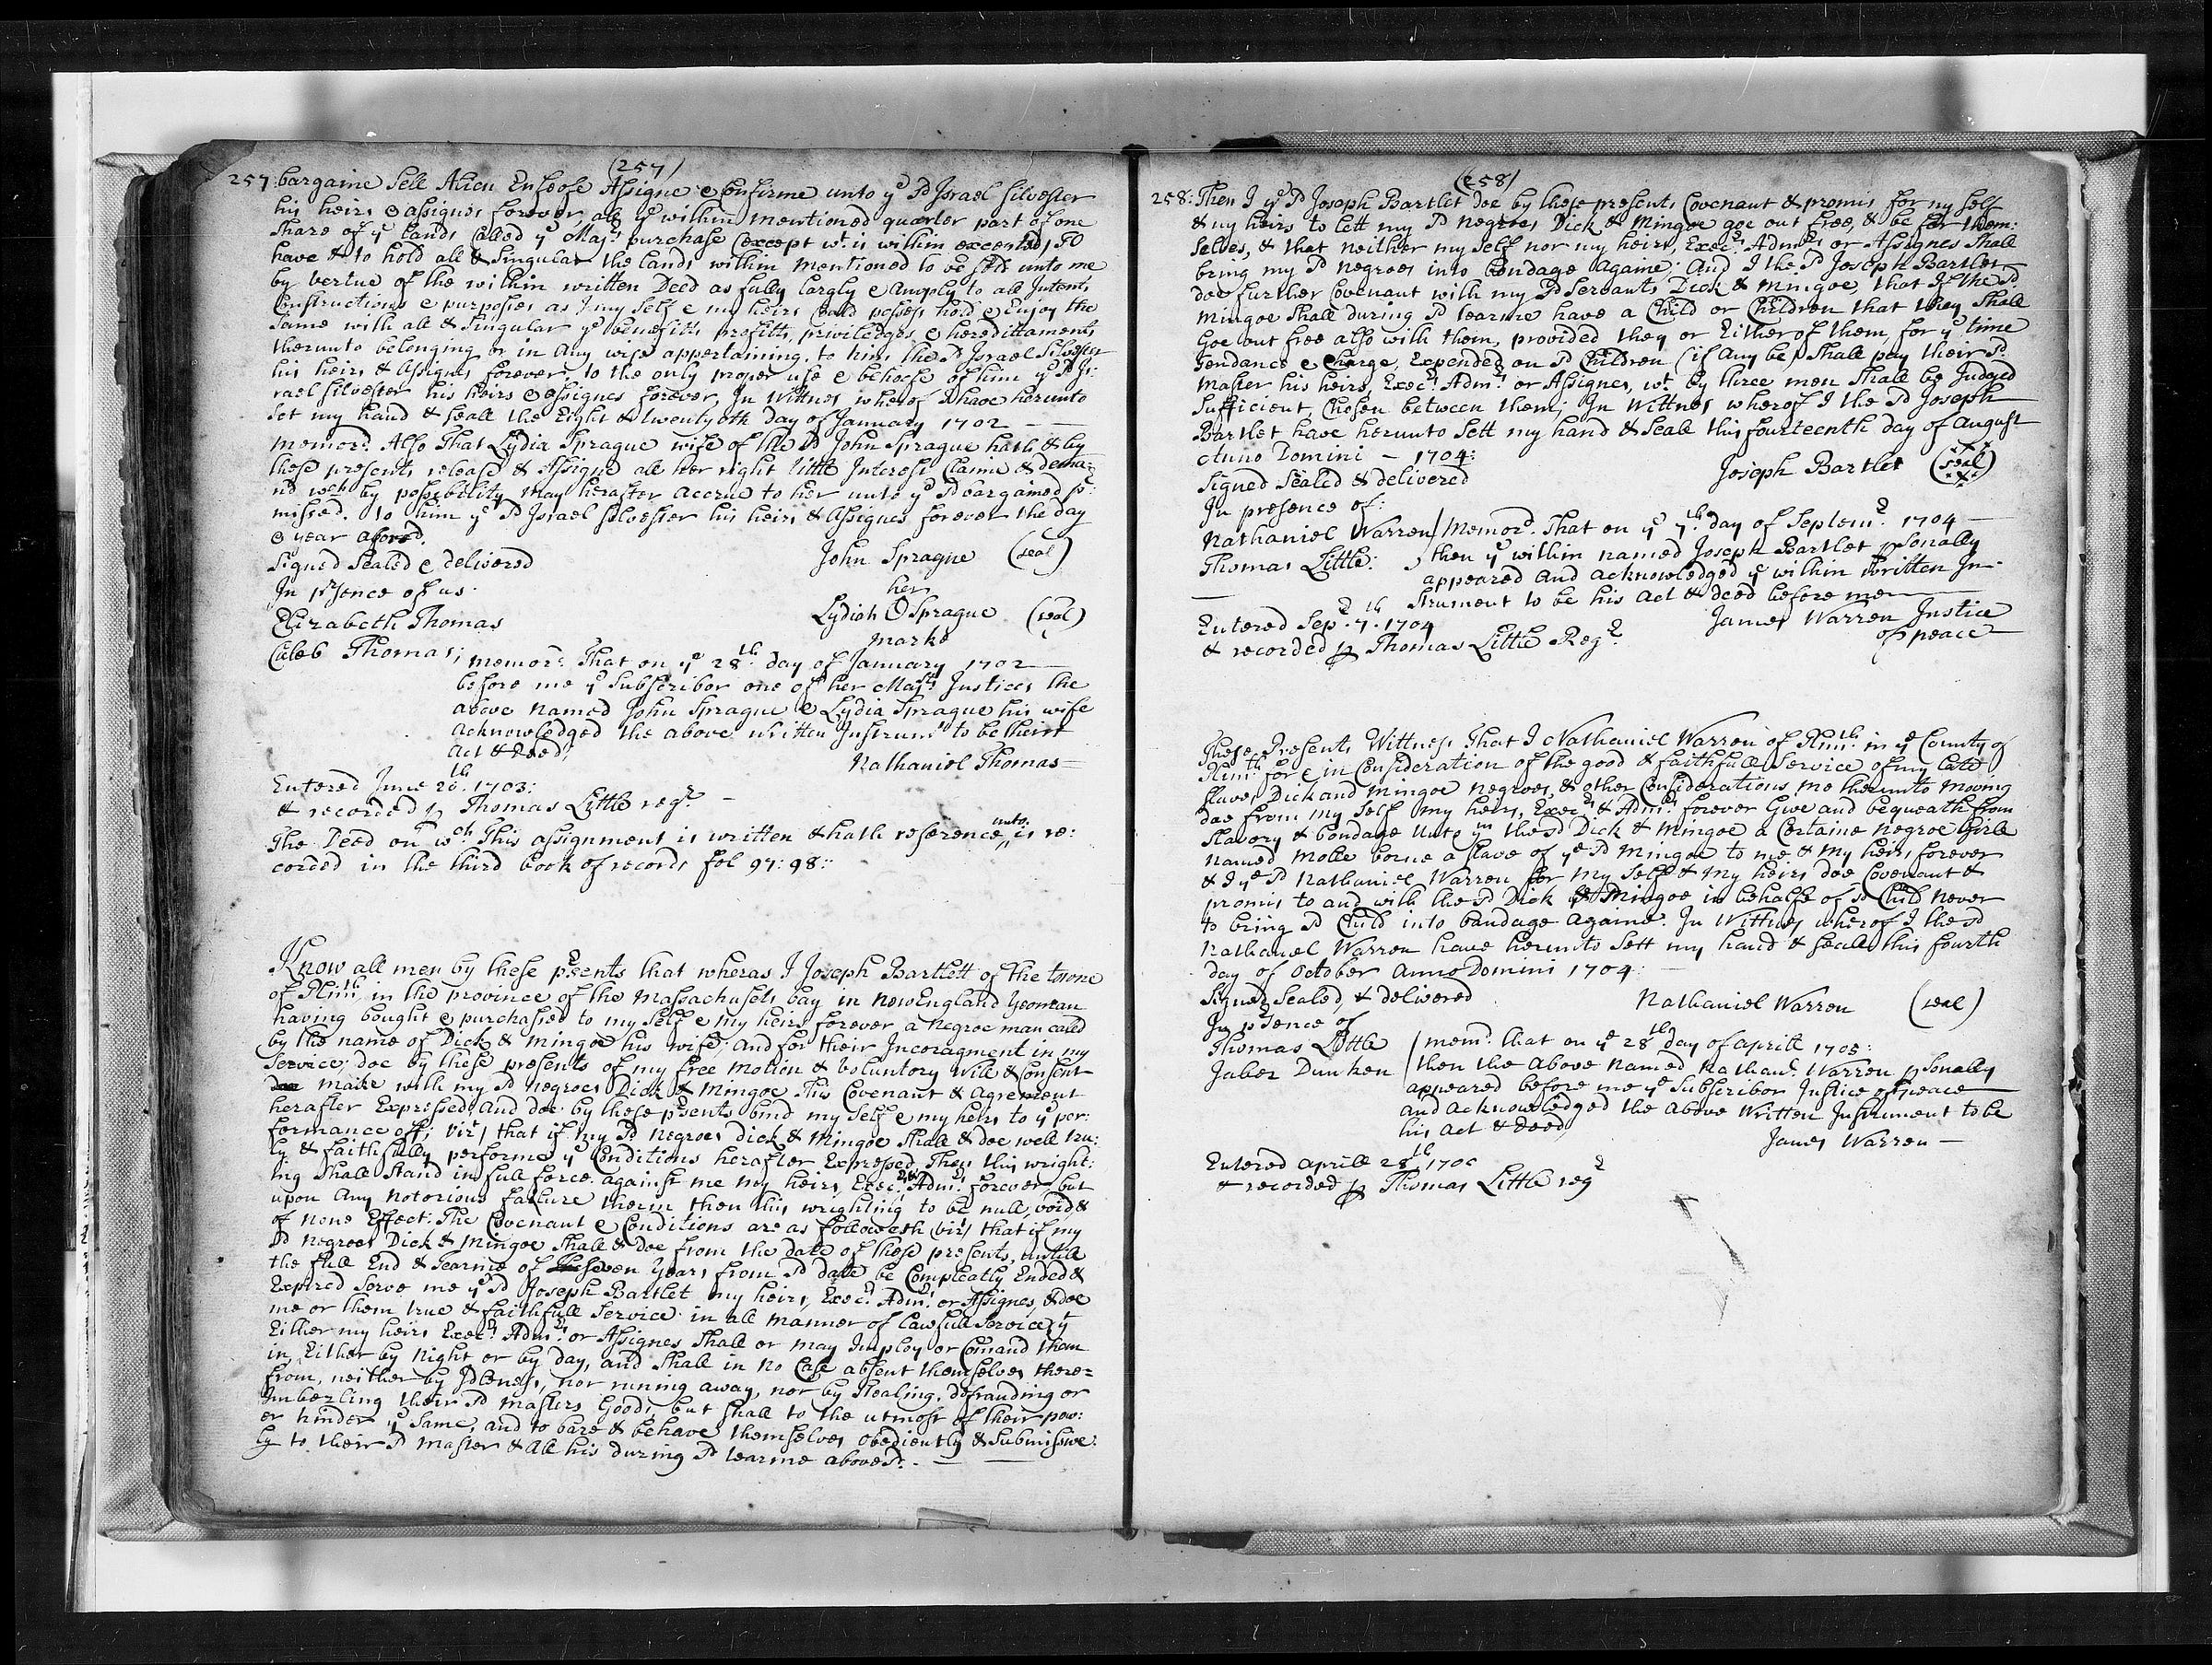 (257)
257: bargaine Sell Alien Enfeofe Assigne & Confirme unto ye sd Israel Silvester
his heirs & assignes forever, all ye within mentioned quarter part of one
share of ye lands Called ye Majrs purchase (except wt is within excepted) To
have & to hold all & Singular the lands within mentioned to be sold unto me
by vertue of the within written Deed as fully largly & Amply to all Intents
Constructions & purposses as I my Self & my heirs Could possess hold & Enjoy the
same with all & Singular ye benefitts profitts, priviledges & heredittaments
therunto belonging or in Any wise appertaining. to him the sd Israel Silvester
his heirs & Assignes forever, to the only proper use & behoofe of him ye sd Is-
rael Silvester his heirs & assignes forever, In Wittnes wherof I have herunto
Set my hand & seall the Eight & twentyeth day of January 1702
Memord. Also That Lydia Sprague wife of the sd John Sprague hath & by
these presents release & Assigne all her right tittle Interest Claime & dema-
nd wch by possebility may herafter accrue to her unto ye sd bargained pr:
missed. to him ye sd Israel Silvester his heirs & Assignes forever the day
& year aforesd.
Signed Sealed & delivered
John Sprague (seal)
In prsence of us.
her
Elizabeth Thomas
Lydiah O Sprague (seal)
marke
Caleb Thomas;
memord. That on ye 28th day of January 1702
before me ye Subscriber one of her Majsts Justices the
above named John Sprague & Lydia Sprague his wife
acknowledged the above written Instrumt to be their
act & deed;
Nathaniel Thomas
Entered June 26th. 1703:
& recorded p Thomas Little regr
The Deed on wch This assignment is written & hath reference unto, is re:
corded in the third book of records fol 97: 98::
Know all men by these prsents that wheras I Joseph Bartlett of the towne
of Plimth in the province of the Massachusets bay in New England Yeoman
having bought & purchased to my Self & my heirs forever a Negroe man caled
by the name of Dick & Mingoe his wife; And for their Incoragment in my
Service; doe by these presents of my free motion & Voluntory Will & Consent
make with my sd negroes Dick & Mingoe This Covenant & Agrement
herafter Expressed: And doe by these prsents bind my Self & my heirs to ye per:
formance off; Vizt/ that if my sd Negroes Dick & Mingoe Shall & doe well tru:
ly & faithfully performe ye Conditions herafter Expressed, Then this wright:
ing Shall Stand in full force. against me my heirs, Execrs. Admrs forever, but
upon Any notorious failure therin then this wrighting to be null, void, &
of none Effect: The Covenant & Conditions are as followeth Vizt that if my
sd negroes Dick & Mingoe Shall & doe from the date of these presents, untill
the full End & Tearme of seven years from sd date be Compleatly Ended &
Expired Serve me ye sd Joseph Bartlet my heirs, Execrs Admrs. or Assignes, & doe
me or them true & faithfull Service in all manner of lawfull Service yt
Either my heirs Execrs Admrs. or Assignes Shall or may Imploy or Comand them
in, Either by Night or by day, and Shall in no Case absent themselves there=
from, neither by Idleness, nor runing away, nor by Stealing, defrauding or
Imbezling their sd masters Goods, but shall to the utmost of their pow:
er hinder ye Same, and to bare & behave themselves obediently & Submissive:
ly to their sd master & all his during sd tearme abovesd.
(258)
258: Then I ye sd Joseph Bartlet doe by these presents Covenant & promis for my self
& my heirs to lett my sd negroes Dick & Mingoe goe out free, & be for them:
selves, & that neither my Self nor my heirs, Execrs Admrs or Assignes Shall
bring my sd negroes into bondage Againe; And I the sd Joseph Bartlet
doe further Covenant with my sd Servants Dick & Mingoe, that if the sd
Mingoe Shall during sd tearme have a Child or Children that they Shall
Goe out free also with them, provided they or Either of them, for ye time
Tendance & Charge, Expended on sd Children (if Any be) Shall pay their sd
Master his heirs, Execrs Admrs or Assignes, wt by three men Shall be Judged
Sufficient, Chosen between them; In Wittnes wherof I the sd Joseph
Bartlet have herunto Sett my hand & Seall this fourteenth day of August
Anno Domini - 1704:
Signed Sealed & delivered
Joseph Bartlet (seal)
In presence of:
Nathaniel Warren
Thomas Little:
Memord. That on ye 7th day of Septemr. 1704
then ye within named Joseph Bartlet psonally
appeared And acknowledged ye within written In-
strument to be his Act & deed before me
Entered Sepr. 7th. 1704
James Warren Justice
of peace
& recorded p Thomas Little Regr
These Presents Wittness That I Nathaniel Warren of Plimth in ye County of
Plimth for & in Consideration of the good & faithfull Service of my late
slaves Dick and Mingoe negroes, & other Considerations me therunto moving
doe from my Self my heirs, Execrs & Admrs forever Give and bequeath from
Slavory & bondage Unto ym the sd Dick & Mingoe a Certaine negroe Girle
named Molle borne a slave of ye sd Mingoe to me, & my heirs, forever
& I ye sd Nathaniel Warren for my Self & my heirs doe Covenant &
promis to and with the sd Dick & Mingoe in behalfe of sd Child never
to bring sd Child into bandage againe. In Wittnes wherof I the sd
Nathaniel Warren have herunto Sett my hand & Seall this fourth
day of October Anno Domini 1704:
Signed, Sealed, & delivered
Nathaniel Warren (seal)
In prsence of
Thomas Little
Jabez Dunken
memd. that on ye 28th day of aprill 1705:
then the above named Nathanl. Warren psonally
appeared before me ye Subscriber Justice of peace
and acknowledged the above Written Instrument to be
his Act & deed,
James Warren
Entered aprill 28th. 1705
& recorded p Thomas Little regr